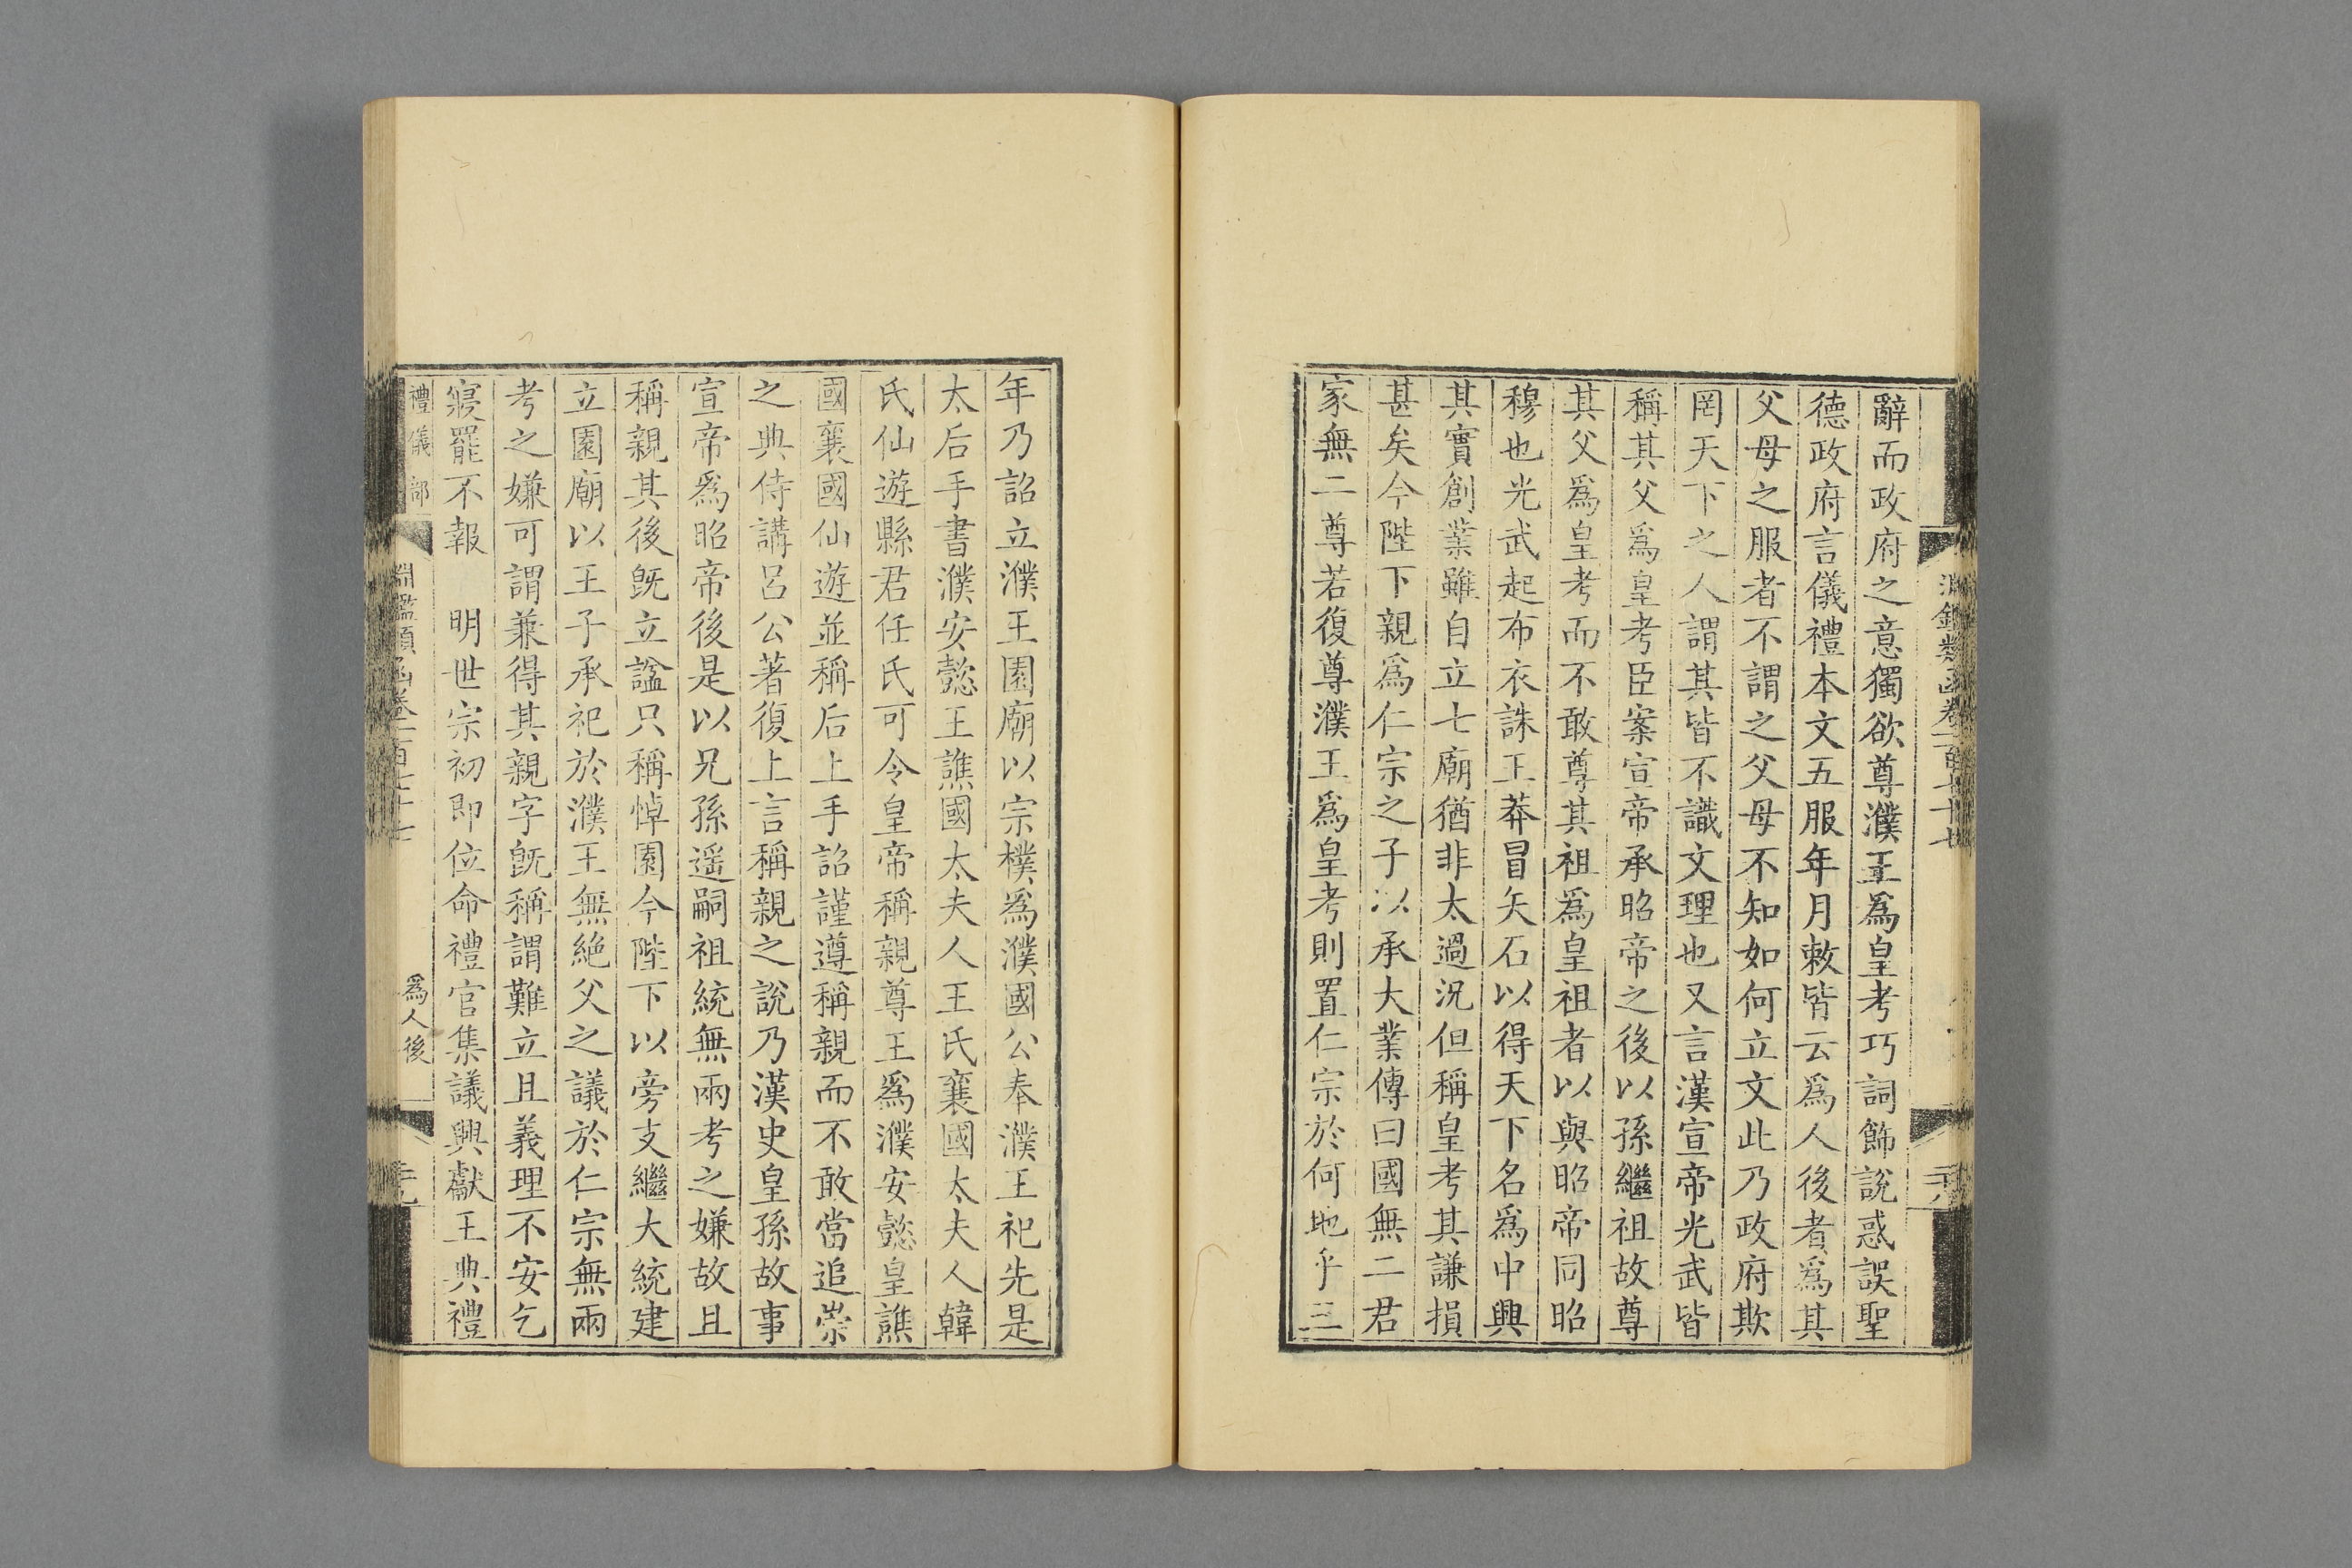 淵鑑類函卷一百七十七
二十八
辭而政府之意獨欲尊濮王爲皇考巧詞飾說惑誤聖
德政府言儀禮本文五服年月敕皆云爲人後者爲其
父母之服者不謂之父母不知如何立文此乃政府欺
罔天下之人謂其皆不識文理也又言漢宣帝光武皆
稱其父爲皇考臣案宣帝承昭帝之後以孫繼祖故尊
其父爲皇考而不敢尊其祖爲皇祖者以與昭帝同昭
穆也光武起布衣誅王莽冒矢石以得天下名爲中興
其實創業雖自立七廟猶非太過況但稱皇考其謙損
甚矣今陛下親爲仁宗之子以承大業傳曰國無二君
家無二尊若復尊濮王爲皇考則置仁宗於何地乎三
年乃詔立濮王園廟以宗樸爲濮國公奉濮王祀先是
太后手書濮安懿王譙國太夫人王氏襄國太夫人韓
氏仙遊縣君任氏可令皇帝稱親尊王爲濮安懿皇譙
國襄國仙遊並稱后上手詔謹遵稱親而不敢當追崇
之典侍講呂公著復上言稱親之說乃漢史皇孫故事
宣帝爲昭帝後是以兄孫遥嗣祖統無兩考之嫌故且
稱親其後旣立謚只稱悼園今陛下以旁支繼大統建
立園廟以王子承祀於濮王無絶父之議於仁宗無兩
考之嫌可謂兼得其親字旣稱謂難立且義理不安乞
寢罷不報　明世宗初即位命禮官集議興獻王典禮
禮儀部
淵鑑類函卷一百七十七
爲人後
二十九